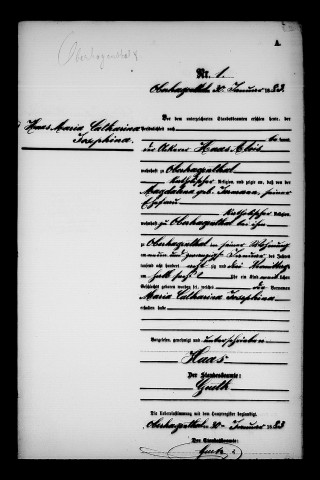 Oberhagenthal
A.
Nr. 1.
Oberhagenthal 30 Januar 1883.
Vor dem unterzeichneten Standesbeamten erschien heute, der
Haas Maria Catharina
Josephina
Persönlichkeit nach
kannt,
der Ackerer Haas Alois
wohnhaft zu Oberhagenthal
katholischer Religion, und zeigte an, daß von der
Magdalena geb. seiner
Ehefrau
katholischer Religion,
wohnhaft zu Oberhagenthal bei ihm
zu Oberhagenthal in seiner Wohnung
am Januar des Jahres
tausend acht hundert achtzig und drei Vormittags
um halb Uhr ein Kind weiblichen
Geschlechts geboren worden sei, welches die Vornamen
Maria Catharina Josephina
erhalten habe
Vorgelesen, genehmigt und unterschrieben
Haas
Der Standesbeamte:
Die Uebereinstimmung mit dem Hauptregister beglaubigt
Oberhagenthal 30 Januar 1883
Der Standesbeamte: